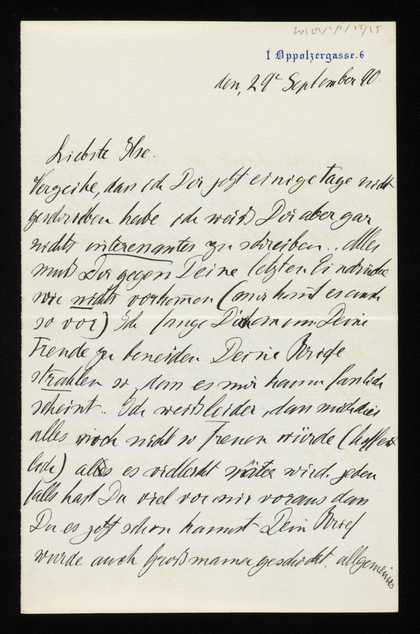 I Oppolzergasse. 6
den, 29t September 90
Liebste Else.
Verzeihe, dass ich Dir jetzt einige Tage nicht
geschrieben habe ich weiss Dir aber gar
nichts interessantes zu schreiben.. Alles
muss Dir gegen Deine letzten Eindrücke
wie nichts vorkommen (mir kommt es auch
so vor) Ich fange an Deine
Freude zu beneiden Deine Briefe
strahlen so, dass es mir kaum
scheint.. Ich weiss leider, dass mich dies
alles noch nicht so freuen würde (hoffent
lich) als es vielleicht später wird jeden
falls hast Du viel vor mir voraus dass
Du es jetzt schon kannst Dein Brief
wurde auch Grossmama geschickt. allgemeines